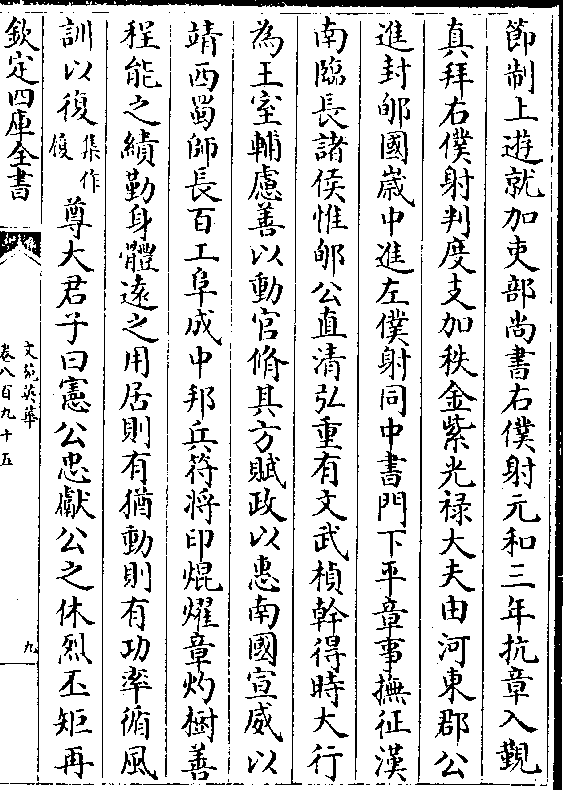 節制上遊就加吏部尚書右僕射元和三年抗章入覲
真拜右僕射判度支加秩金紫光禄大夫由河東郡公
進封郇國歲中進左僕射同中書門下平章事撫征漢
南臨長諸侯惟郇公直清弘重有文武楨幹得時大行
為王室輔慮善以動官脩其方賦政以惠南國宣威以
靖西蜀師長百工阜成中邦兵符将印焜燿章灼樹善
程能之績勤身體遠之用居則有猶動則有功率循風
訓以復集作復尊大君子曰憲公忠獻公之休烈丕矩再
欽定四庫全書
文苑英華
卷八百九十五
九